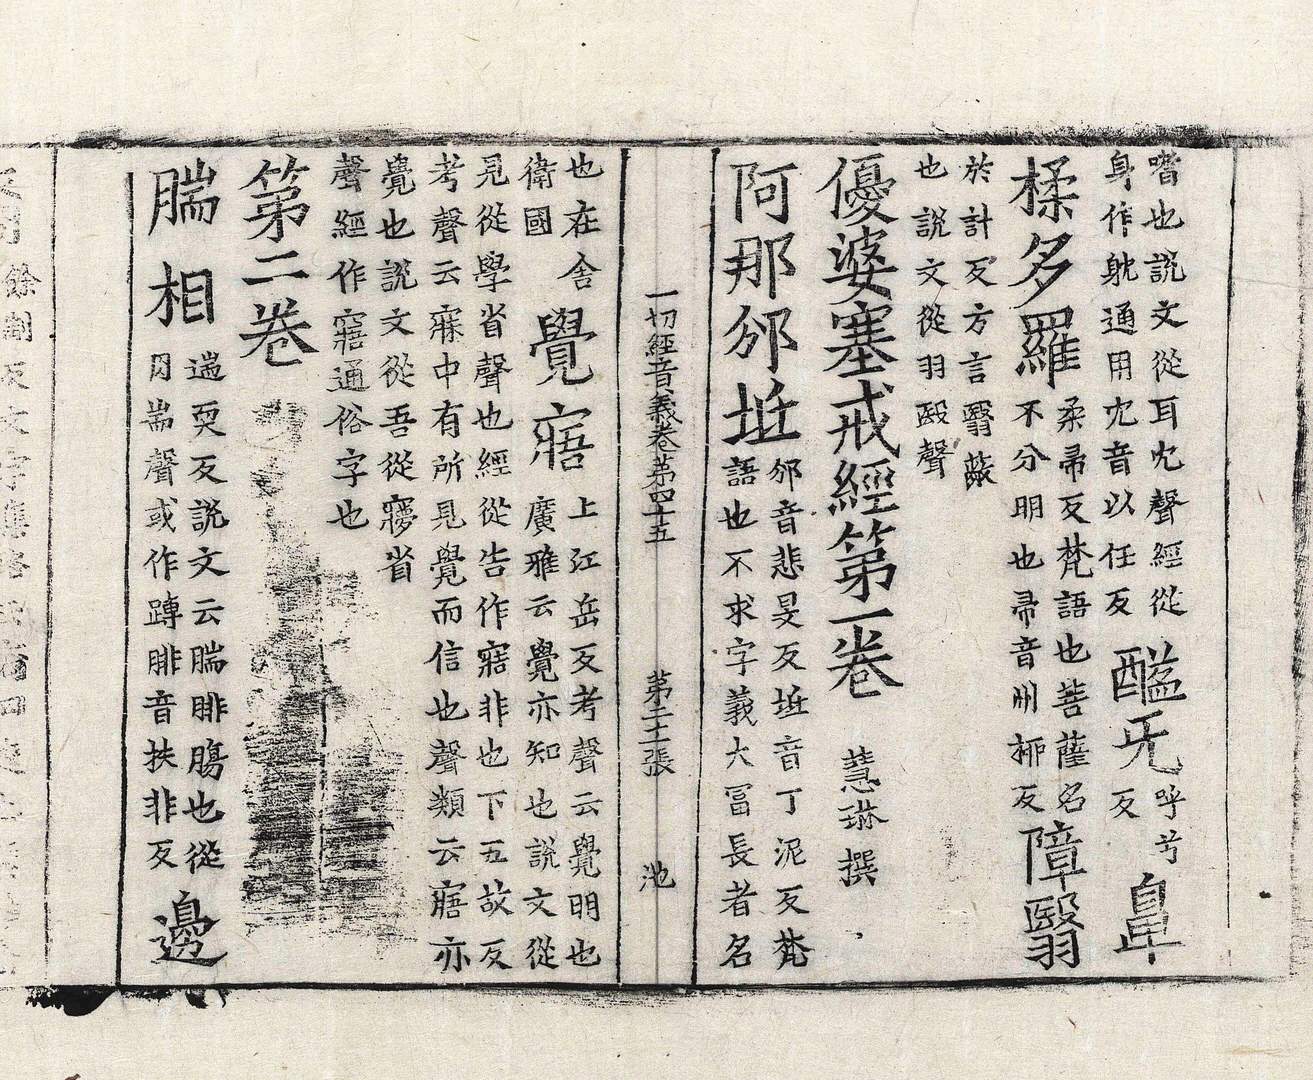 嗜也説文從耳冘聲經從
身作躭通用冘音以任反
醯兂
呼兮
反
鼻
楺多羅
柔帚反梵語也菩薩名
不分明也帚音州桺反
障翳
於計反方言翳薆
也説文從羽殹聲
優婆塞戒經第一卷 慧琳撰
阿那邠坻
邠音悲旻反坻音丁泥反梵
語也不求字義大冨長者名
一切經音義卷第四十五 第二十一張 池
也在舍
衛國
覺寤
上江岳反考聲云覺明也
廣雅云覺亦知也説文從
見從學省聲也經從告作寤非也下五故反
考聲云寐中有所見覺而信也聲類云寤亦
覺也説文從吾從㝱省
聲經作寤通俗字也
第二卷
腨相
遄耎反説文云腨腓膓也從
月耑聲或作蹲腓音扶非反
邊